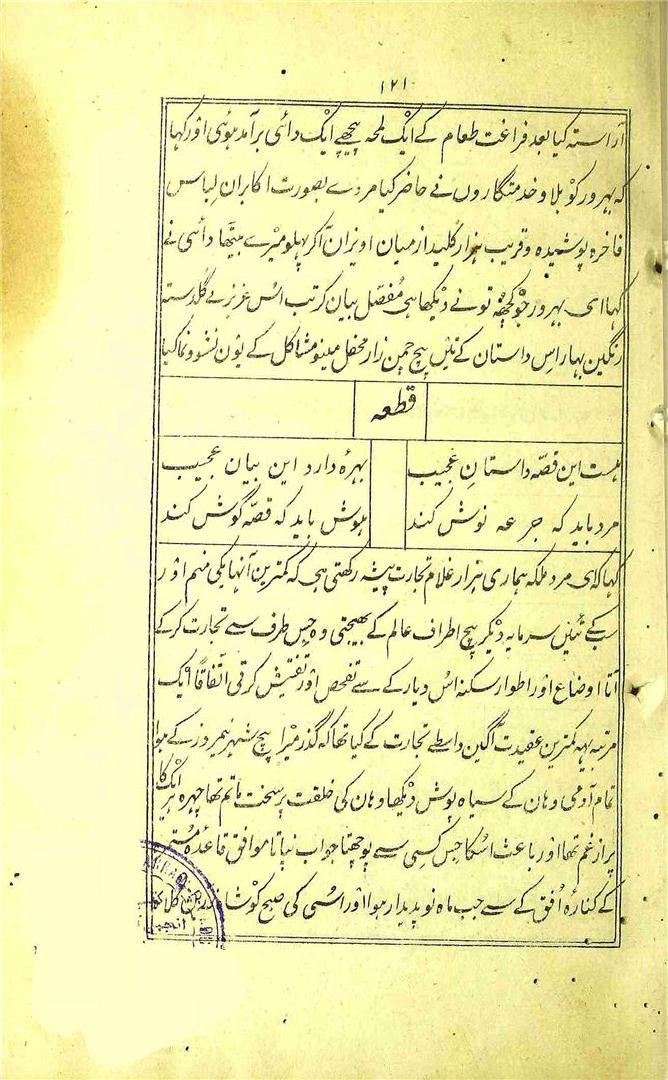 ۱۲۱
آراستہ کیا بعد فراغت طعام کے ایک لمحہ پیچھے ایک دائی برآمد ہوئی اور کہا
کہ بہرور کو بلاو خدمتگاروں نے حاضر کیا مردے بصورت اکابران لباس
فاخرہ پوشیدہ و قریب ہزار کلید از میان اویزان آکر پہلو میرے بیٹھا دائی نے
کہا ای بہرور جو کچھ تو نے دیکھا ہی مفصل بیان کر تب اس عزیز نے گلدستہ
رنگین بہار اس داستان کے تئیں بیچ چمن زار محفل مینو مشاکل کے یوں نشوونما کیا
قطعہ
ہست این قصّہ داستانِ عجیب بہرہ دارد این بیان عجیب
مرد باید کہ جرعہ نوش کند ہوش باید کہ قصّہ گوش کند
کہا کہ ای مرد ملکہ ہماری ہزار غلام تجارت پیشہ رکھتی ہی کہ کمترین آنہا یکی منہم اور
سبکے تئیں سرمایہ دیکر بیچ اطراف عالم کے بھیجتی وہ جس طرف سے تجارت کر کے
آتا اوضاع اور اطوار سکنہ اس دیار کے سے تفحص اور تفتیش کرتی اتفاقاً ایک
مرتبہ یہہ کمترین عقیدت آگین واسطے تجارت کے گیا تھا کہ گذر میرا بیچ شہر نیمروز کے ہوا
تمام آدمی وہاں کے سیاہ پوش دیکھا وہان کی خلقت پر سخت ماتم تھا چہرہ ہر ایک کا
پر از غم تھا اور باعث اسکا جس کسی سے پوچھتا جواب نپاتا موافق قاعدہ
کے کنارہ اُفق کے سے جب ماہ نو پدیدار ہوا اور اُسی کی صبح کو